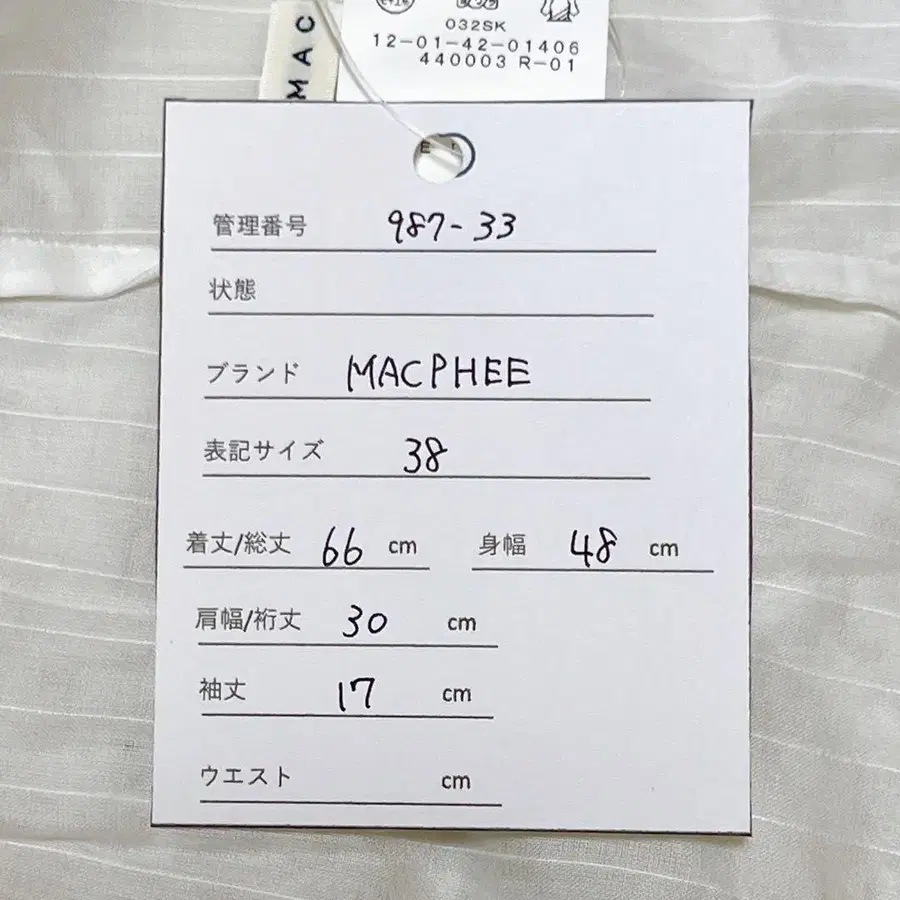 MAC
032SK
12-01-42-01406
440003 R-01
管理番号 987-33
状態
ブランド MACPHEE
表記サイズ 38
着丈/総丈 66 cm 身幅 48 cm
肩幅/裄丈 30 cm
袖丈 17 cm
ウエスト cm